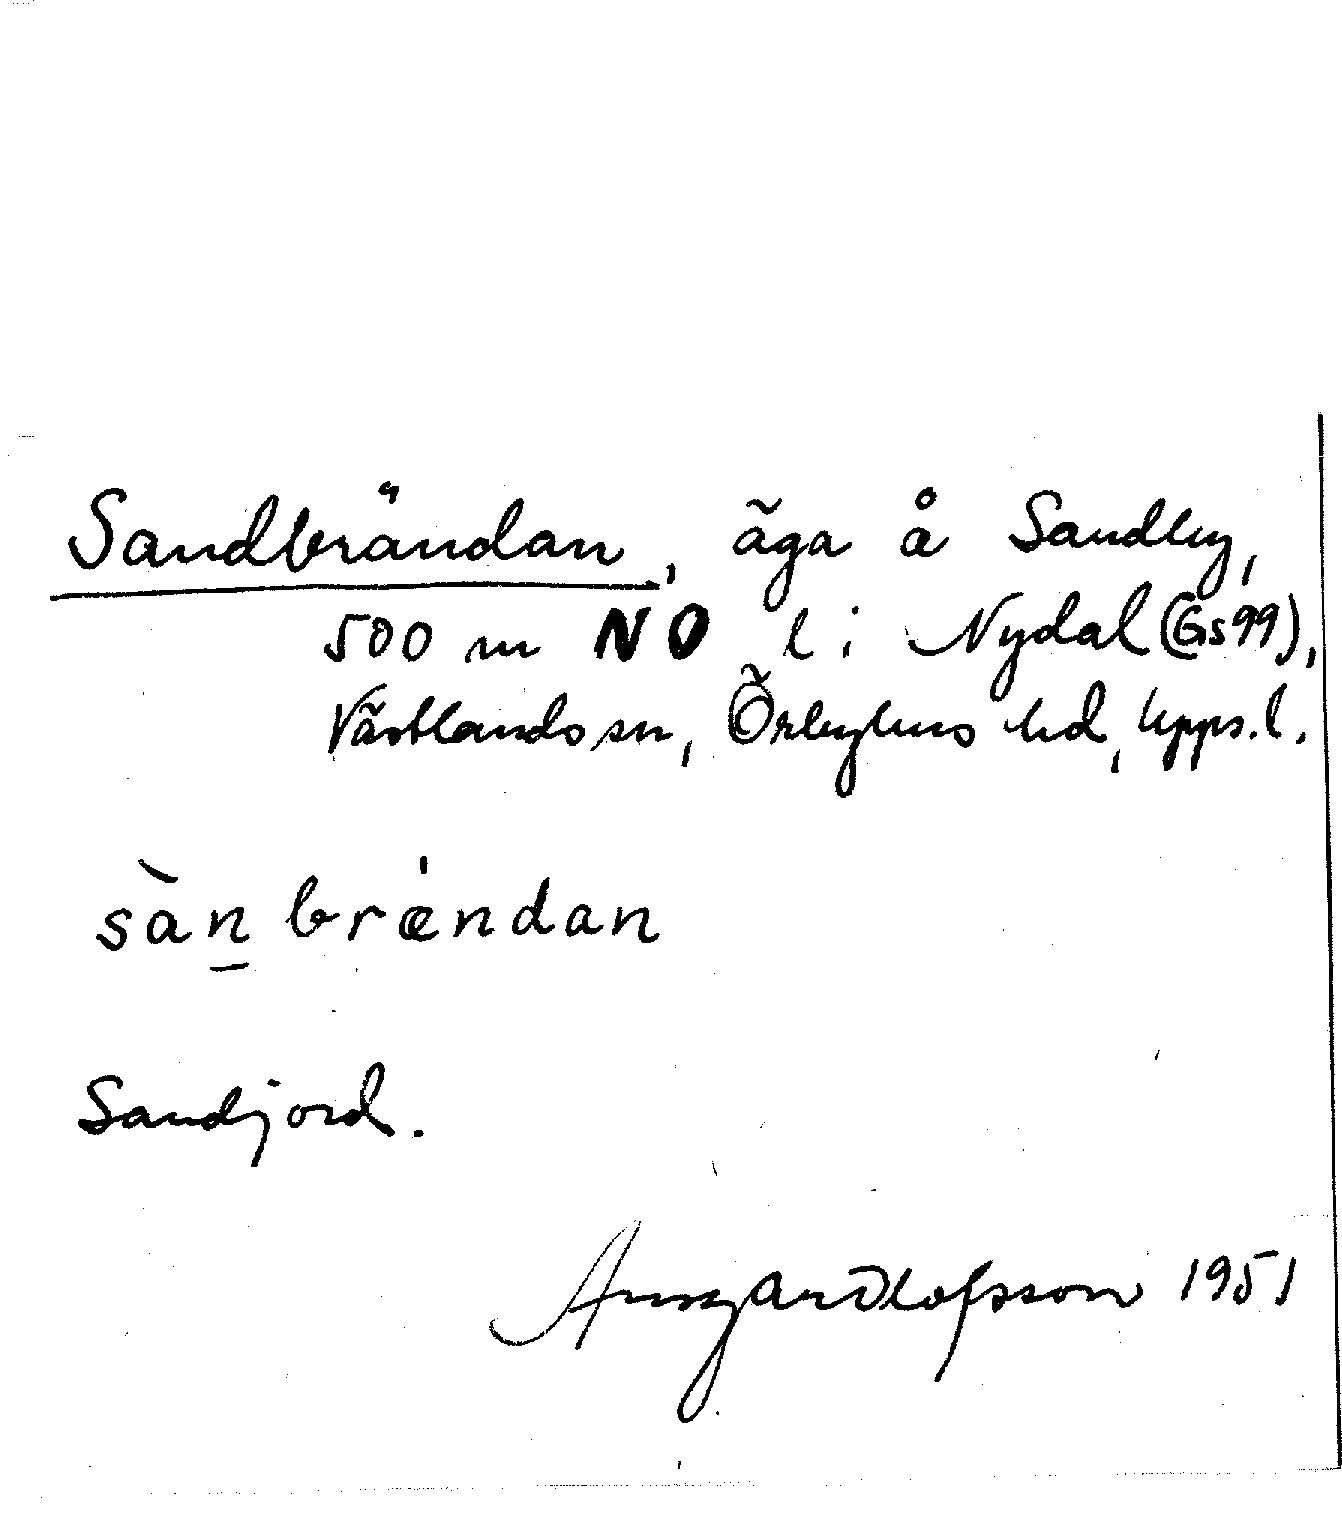 Sandbrändan, äga å Sandby,
500 m NO l i Nydal (Gs99),
Västlands sn, Örbyhus hd, Upps. l.
sàn brǽndan
Sandjord.
Ansgar Olofsson 1951